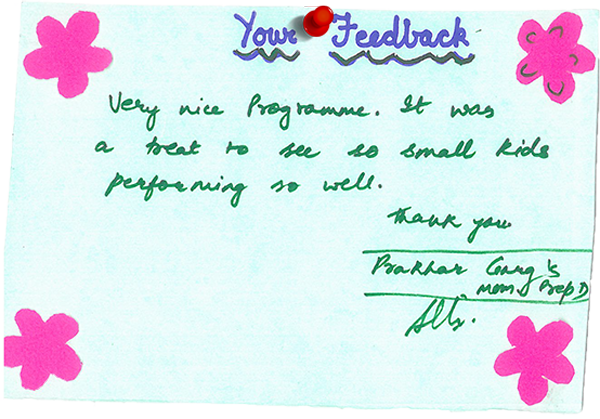 Your Feedback
Very nice Programme. It was
a treat to see so small kids
performing so well.
Thank you.
Prakhar Garg's
mom. Prep D